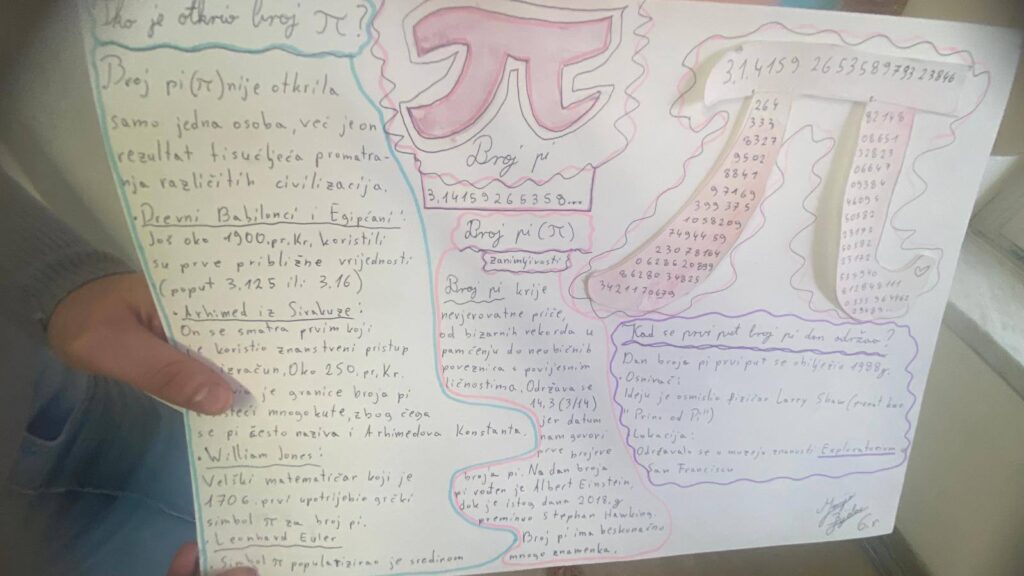 Tko je otkrio broj π?
Broj pi (π) nije otkrila
samo jedna osoba, već je on
rezultat tisućljeća promatra-
nja različitih civilizacija.
• Drevni Babilonci i Egipćani:
Još oko 1900.pr.Kr. koristili
su prve približne vrijednosti
(poput 3.125 ili 3.16)
• Arhimed iz Sirakuze:
On se smatra prvim koji
je koristio znanstveni pristup
izračun. Oko 250.pr.Kr.
je granice broja pi
mnogokute, zbog čega
se pi često naziva i Arhimedova Konstanta.
• William Jones:
Veliki matematičar koji je
1706. prvi upotrijebio grčki
simbol π za broj pi.
• Leonhard Euler
• Simbol π popularizirao je sredinom
π
Broj pi
3.14159265359...
Broj pi (π)
zanimljivosti
Broj pi krije
nevjerovatne priče,
od bizarnih rekorda u
pamćenju do neobičnih
poveznica s povijesnim
ličnostima. Održava se
14.3 (3/14)
jer datum
nam govori
prve brojeve
broja pi. Na dan broja
pi rođen je Albert Einstein,
dok je istog dana 2018.g
preminuo Stephan Hawking.
Broj pi ima beskonačno
mnogo znamenka.
3.1.4159 2653589793 23846
264
333
8327
9502
8841
97169
399375
1058209
7494459
23078164
0628620899
86280 34825
3421170679
82148
08651
32823
06647
09384
46095
50582
Kad se prvi put broj pi dan održao?
Dan broja pi prvi put se obilježio 1988g.
Osnivač:
Ideju je osmislio fizičar Larry Shaw (poznat kao
"Princ od Pi")
Lokacija:
Održavala se u muzeju znanosti Exploratorium
San Francisco
6.r